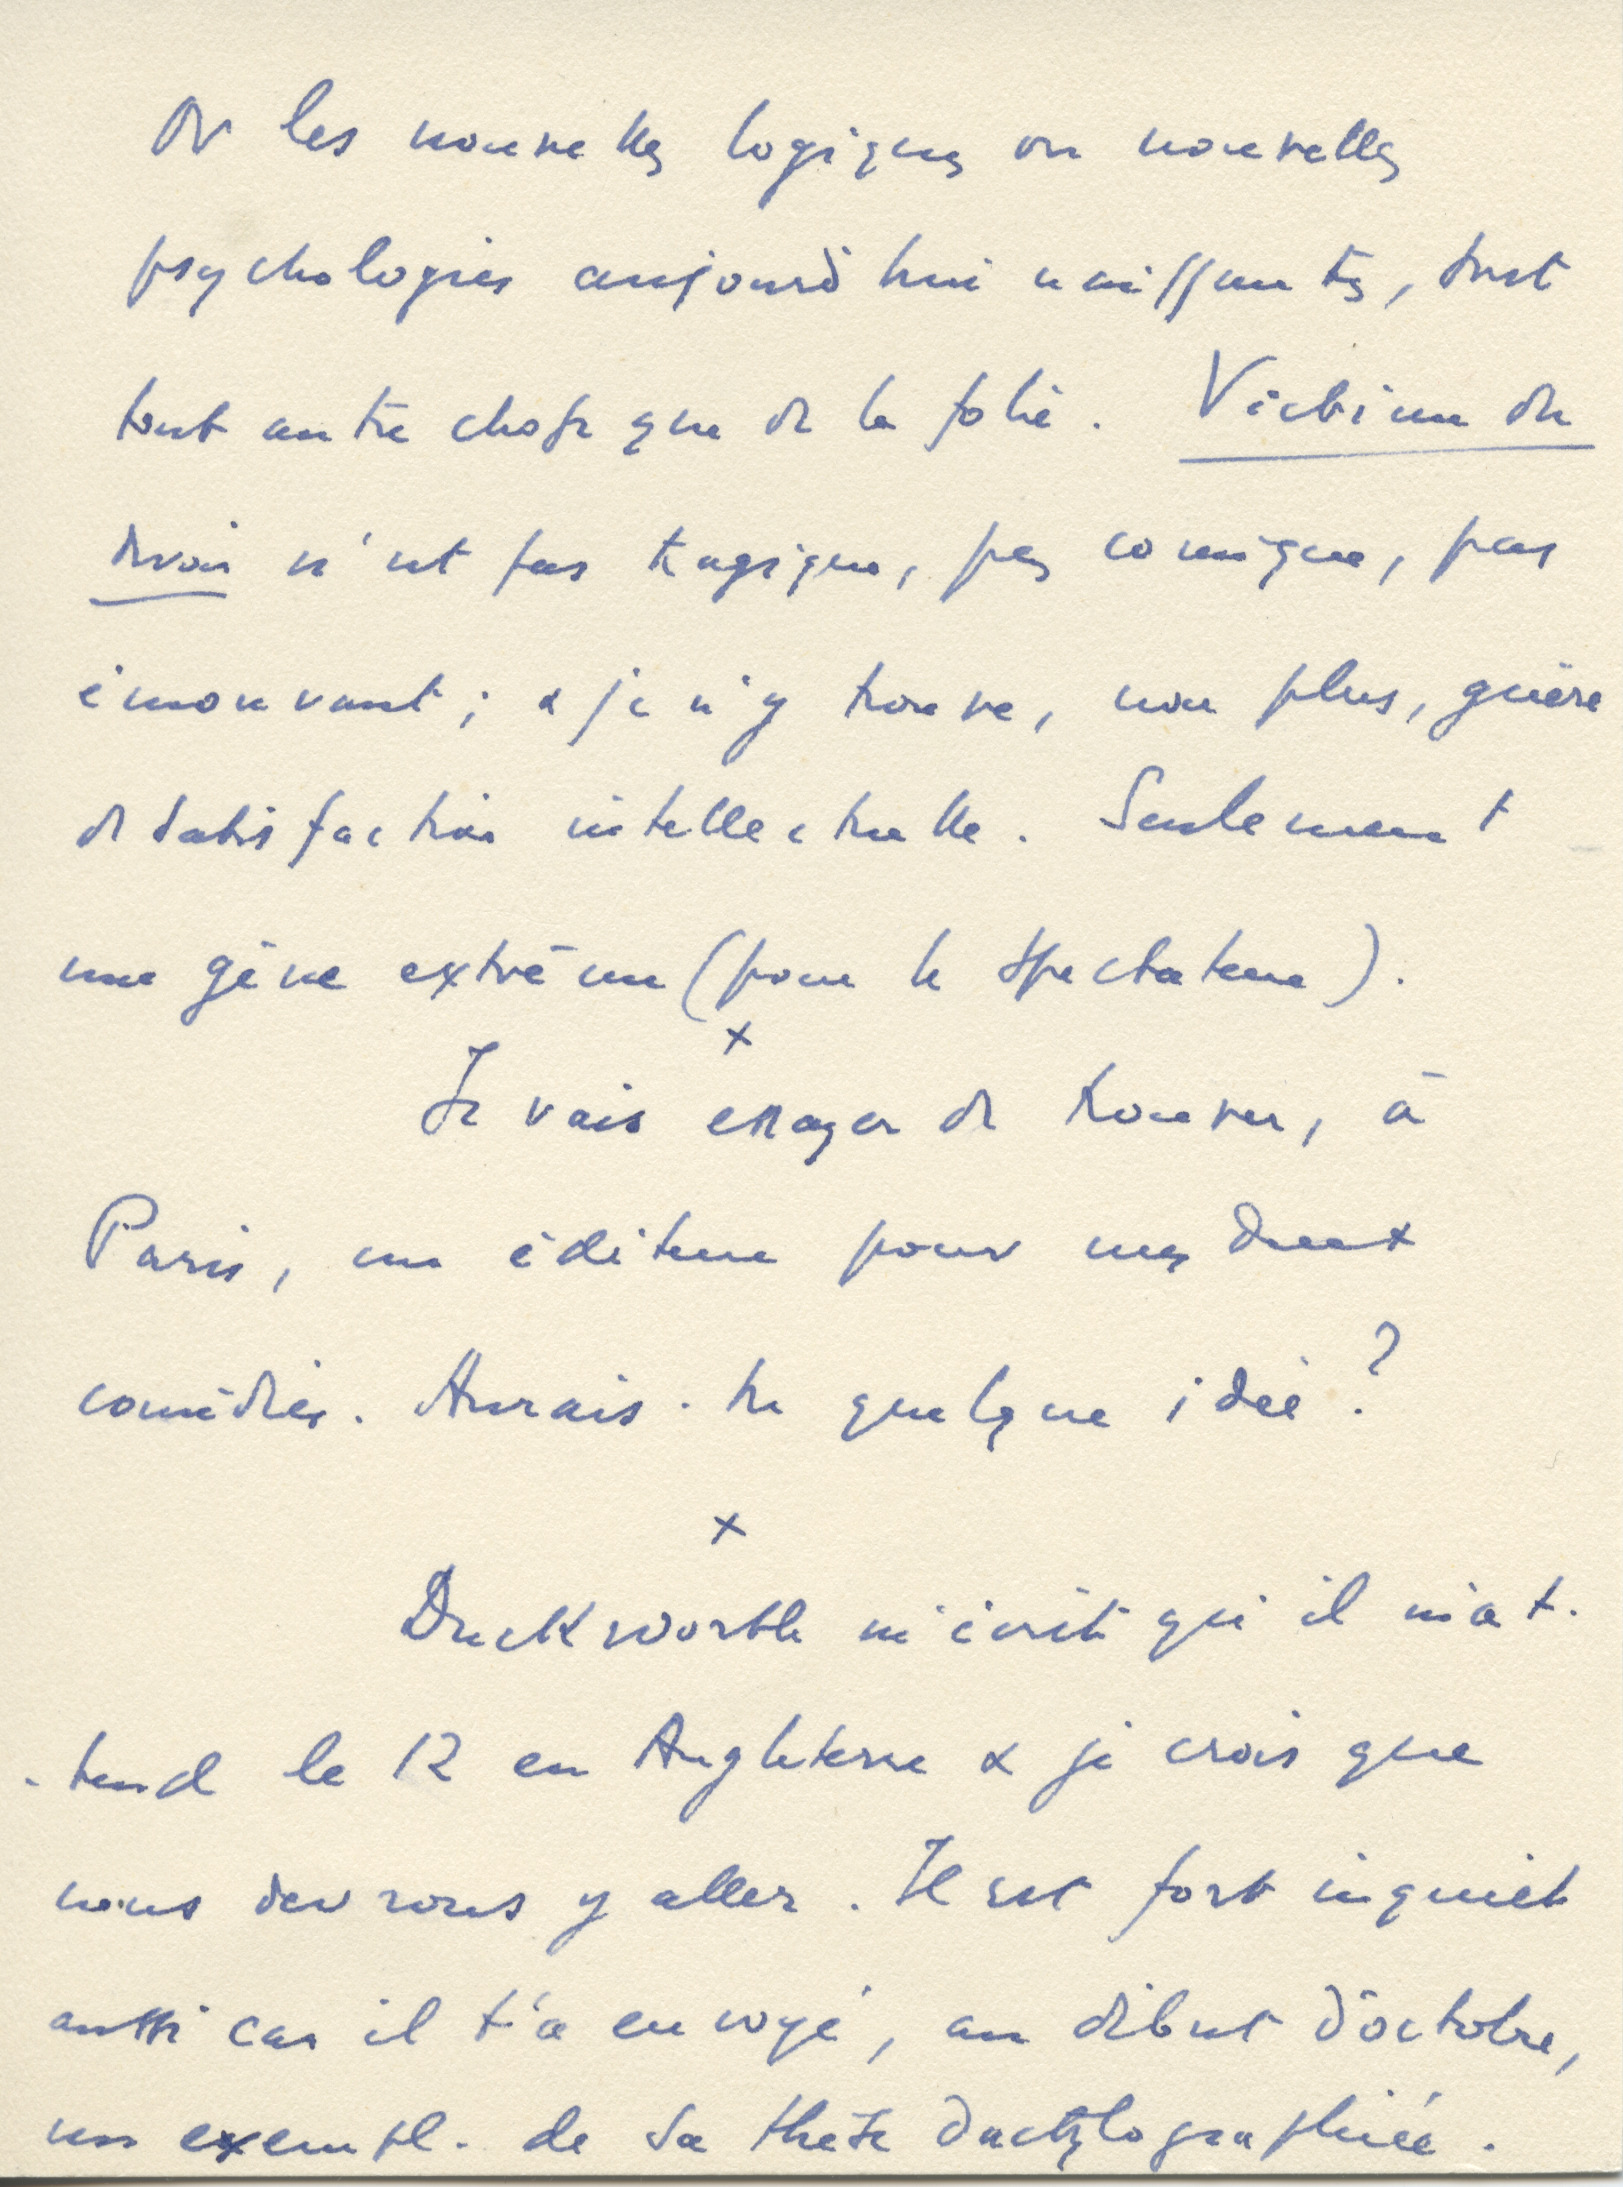 Or les nouvelles logiques ou nouvelles
psychologies aujourd'hui naissantes, sont
tout autre chose que de la folie. Victimes du
devoir n'est pas tragique, pas comique, pas
émouvant ; & je n'y trouve, non plus, guère
de satisfaction intellectuelle. Seulement
une gêne extrême (pour le spectateur).
x
Je vais essayer de trouver, à
Paris, un éditeur pour mes deux
comédies. Aurais-tu quelque idée ?
x
Duckworth m'écrit qu'il m'at-
-tend le 12 en Angleterre & je crois que
nous devrons y aller. Il est fort inquiet
aussi car il t'a envoyé, au début d'octobre,
un exempl. de sa thèse dactylographiée.